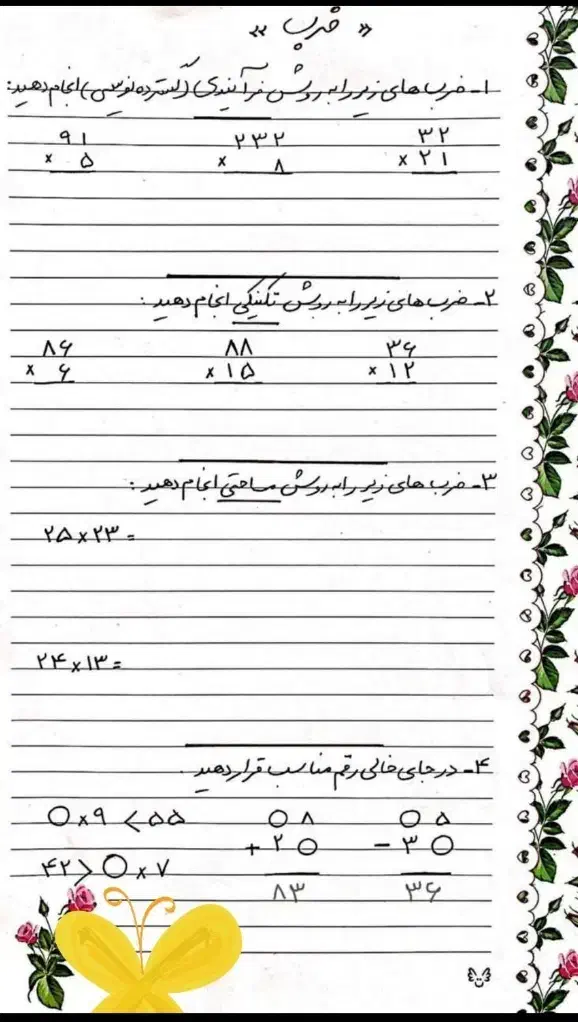 « ضرب »
۱- ضرب های زیر را به روش فرآیندی (گسترده نویسی) انجام دهید:
۳۲ ۲۳۲ ۹۱
× ۲۱ × ۸ × ۵
۲- ضرب های زیر را به روش تکنیکی انجام دهید:
۳۶ ۸۸ ۸۶
× ۱۲ × ۱۵ × ۶
۳- ضرب های زیر را به روش مساحتی انجام دهید:
۲۵ × ۲۳ =
۲۴ × ۱۳ =
۴- در جای خالی رقم مناسب قرار دهید.
○۵ ○۸ ○ × ۹ < ۵۵
- ۳○ + ۲○
۴۲ > ○ × ۷
۳۶ ۸۳